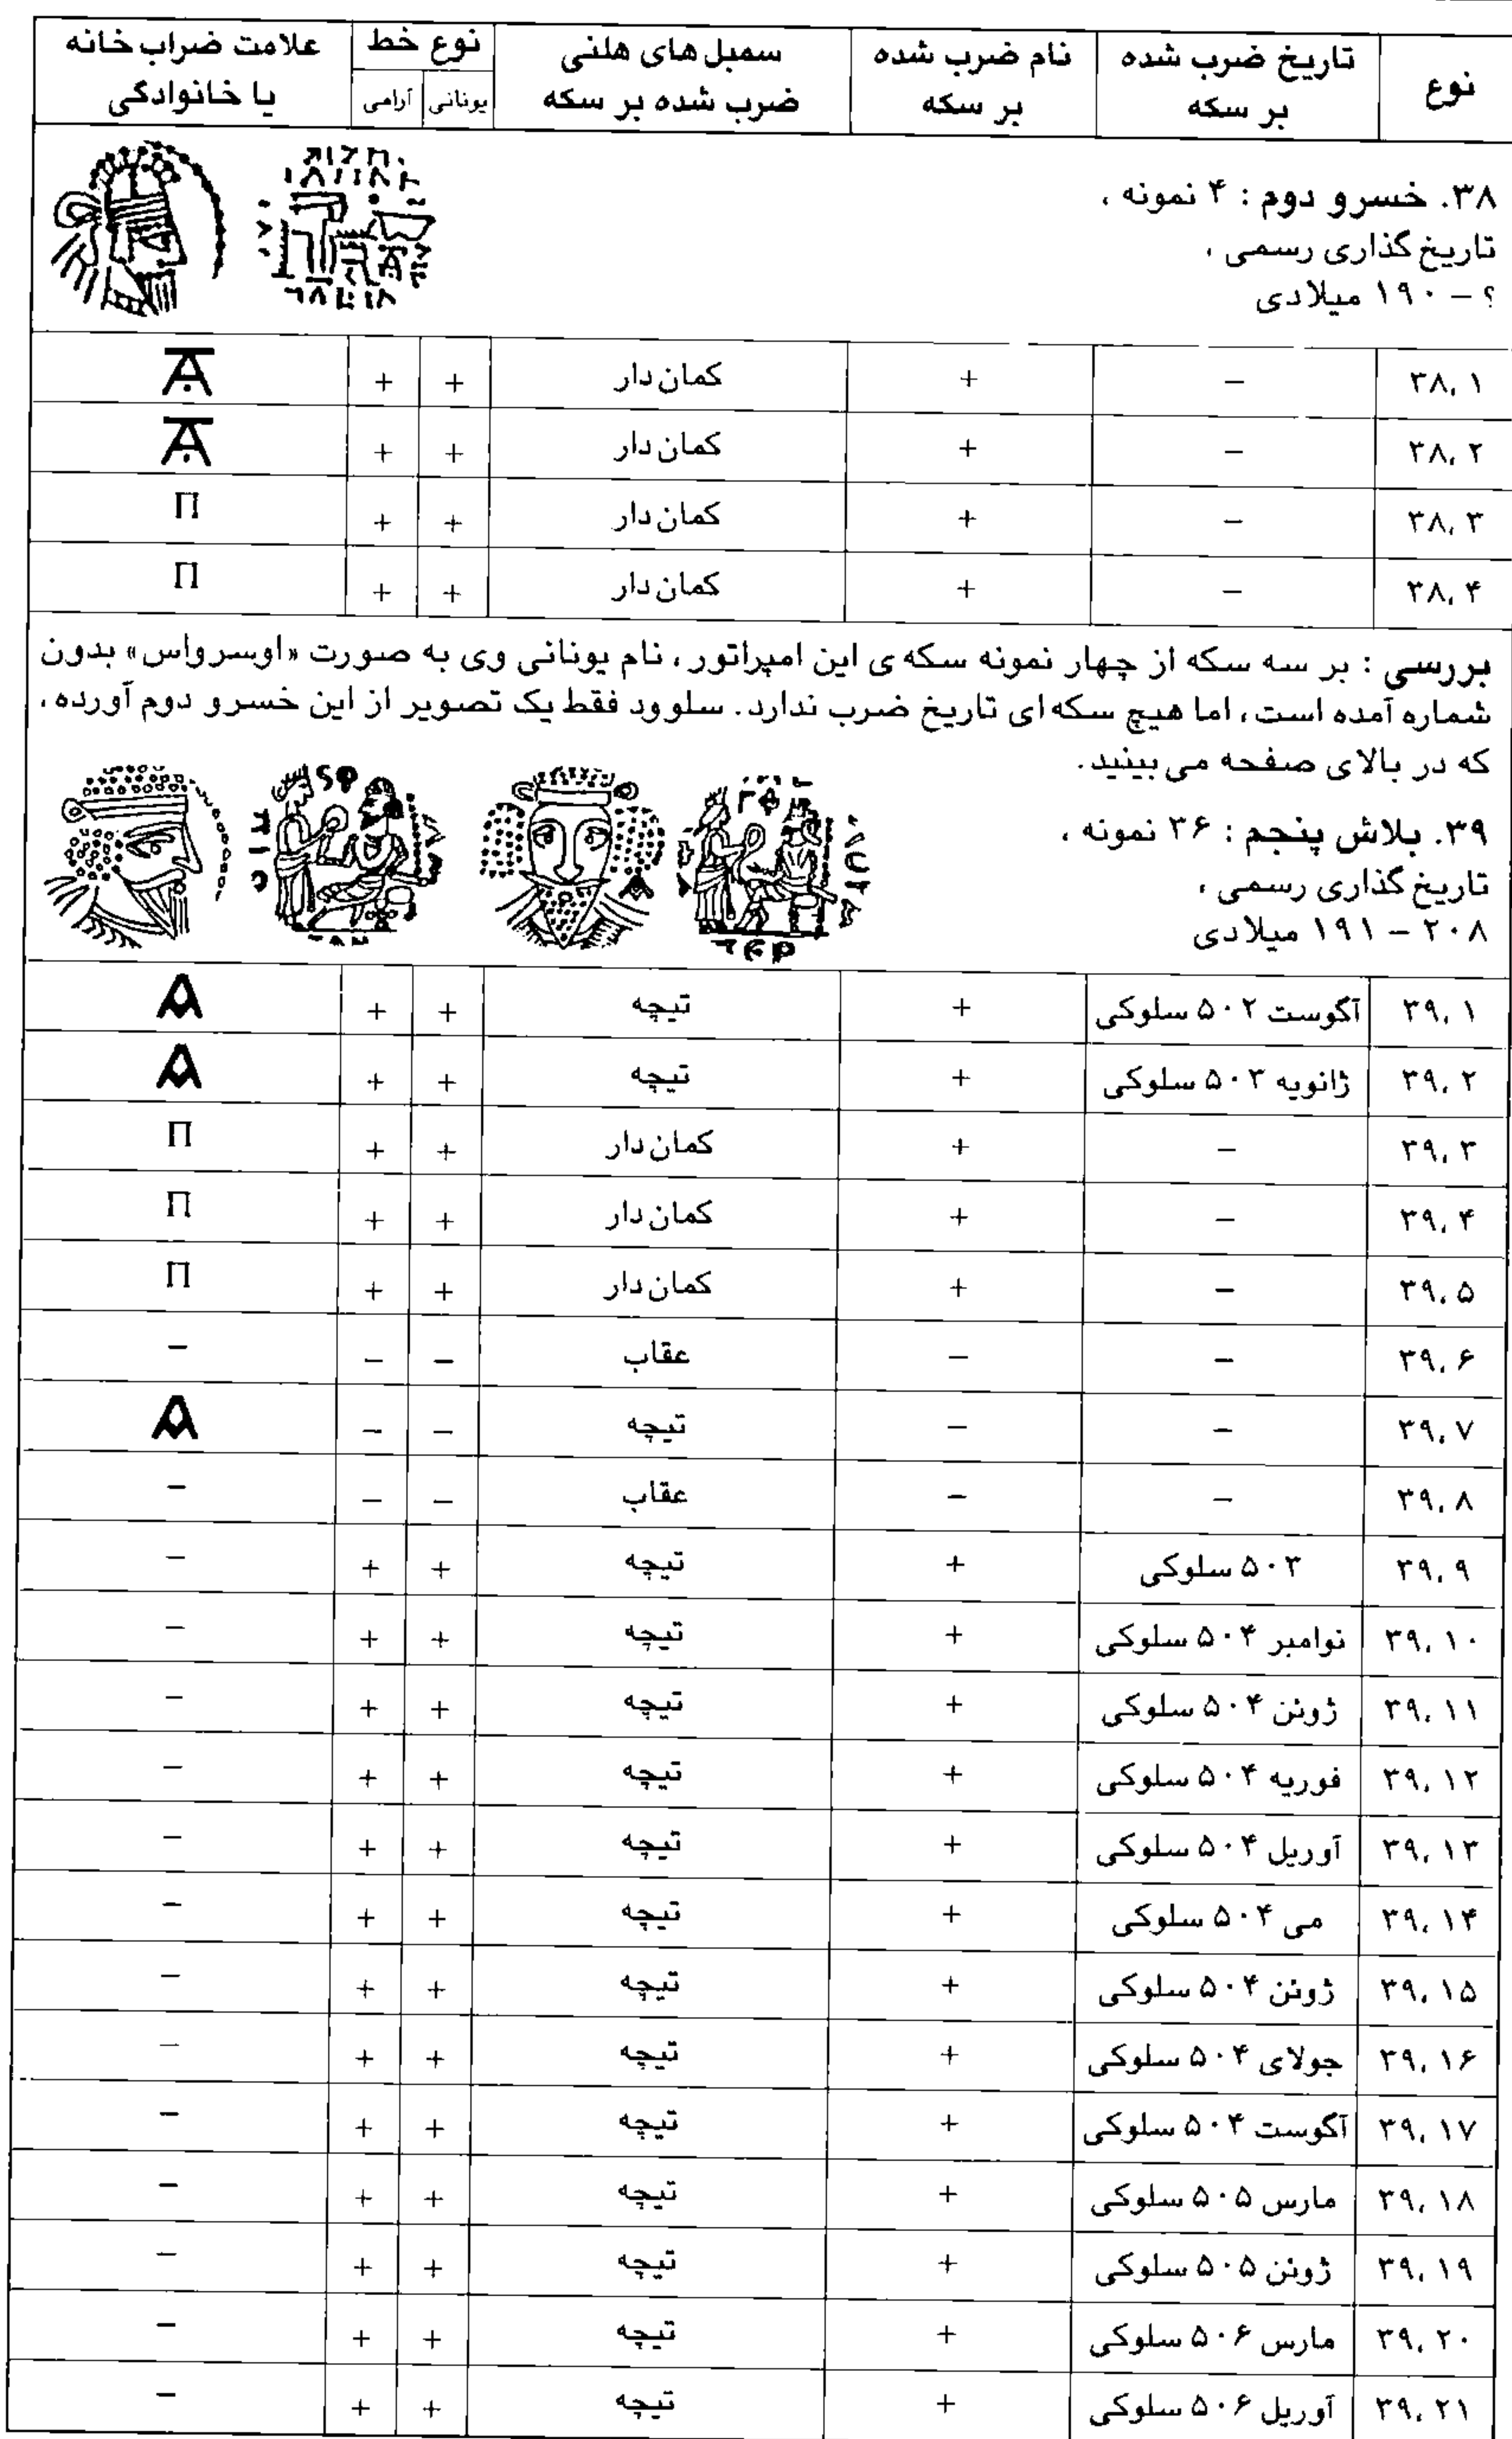 نوع | تاریخ ضرب شده بر سکه | نام ضرب شده بر سکه | سمبل های هلنی ضرب شده بر سکه | نوع خط یونانی | آرامی | علامت ضراب خانه یا خانوادگی
۳۸. خسرو دوم : ۴ نمونه ،
تاریخ گذاری رسمی ،
؟ – ۱۹۰ میلادی
۳۸، ۱ | – | + | کمان دار | + | + |
۳۸، ۲ | – | + | کمان دار | + | + |
۳۸، ۳ | – | + | کمان دار | + | + | Π
۳۸، ۴ | – | + | کمان دار | + | + | Π
بررسی : بر سه سکه از چهار نمونه سکه ی این امپراتور ، نام یونانی وی به صورت «اوسرواس» بدون
شماره آمده است ، اما هیچ سکه ای تاریخ ضرب ندارد. سلوود فقط یک تصویر از این خسرو دوم آورده ،
که در بالای صفحه می بینید.
۳۹. بلاش پنجم : ۳۶ نمونه ،
تاریخ گذاری رسمی ،
۲۰۸ – ۱۹۱ میلادی
۳۹، ۱ | آگوست ۵۰۲ سلوکی | + | تیچه | + | + |
۳۹، ۲ | ژانویه ۵۰۳ سلوکی | + | تیچه | + | + |
۳۹، ۳ | – | + | کمان دار | + | + | Π
۳۹، ۴ | – | + | کمان دار | + | + | Π
۳۹، ۵ | – | + | کمان دار | + | + | Π
۳۹، ۶ | – | – | عقاب | – | – | –
۳۹، ۷ | – | – | تیچه | – | – |
۳۹، ۸ | – | – | عقاب | – | – | –
۳۹، ۹ | ۵۰۳ سلوکی | + | تیچه | + | + | –
۳۹، ۱۰ | نوامبر ۵۰۴ سلوکی | + | تیچه | + | + | –
۳۹، ۱۱ | ژوئن ۵۰۴ سلوکی | + | تیچه | + | + | –
۳۹، ۱۲ | فوریه ۵۰۴ سلوکی | + | تیچه | + | + | –
۳۹، ۱۳ | آوریل ۵۰۴ سلوکی | + | تیچه | + | + | –
۳۹، ۱۴ | می ۵۰۴ سلوکی | + | تیچه | + | + | –
۳۹، ۱۵ | ژوئن ۵۰۴ سلوکی | + | تیچه | + | + | –
۳۹، ۱۶ | جولای ۵۰۴ سلوکی | + | تیچه | + | + | –
۳۹، ۱۷ | آگوست ۵۰۴ سلوکی | + | تیچه | + | + | –
۳۹، ۱۸ | مارس ۵۰۵ سلوکی | + | تیچه | + | + | –
۳۹، ۱۹ | ژوئن ۵۰۵ سلوکی | + | تیچه | + | + | –
۳۹، ۲۰ | مارس ۵۰۶ سلوکی | + | تیچه | + | + | –
۳۹، ۲۱ | آوریل ۵۰۶ سلوکی | + | تیچه | + | + | –